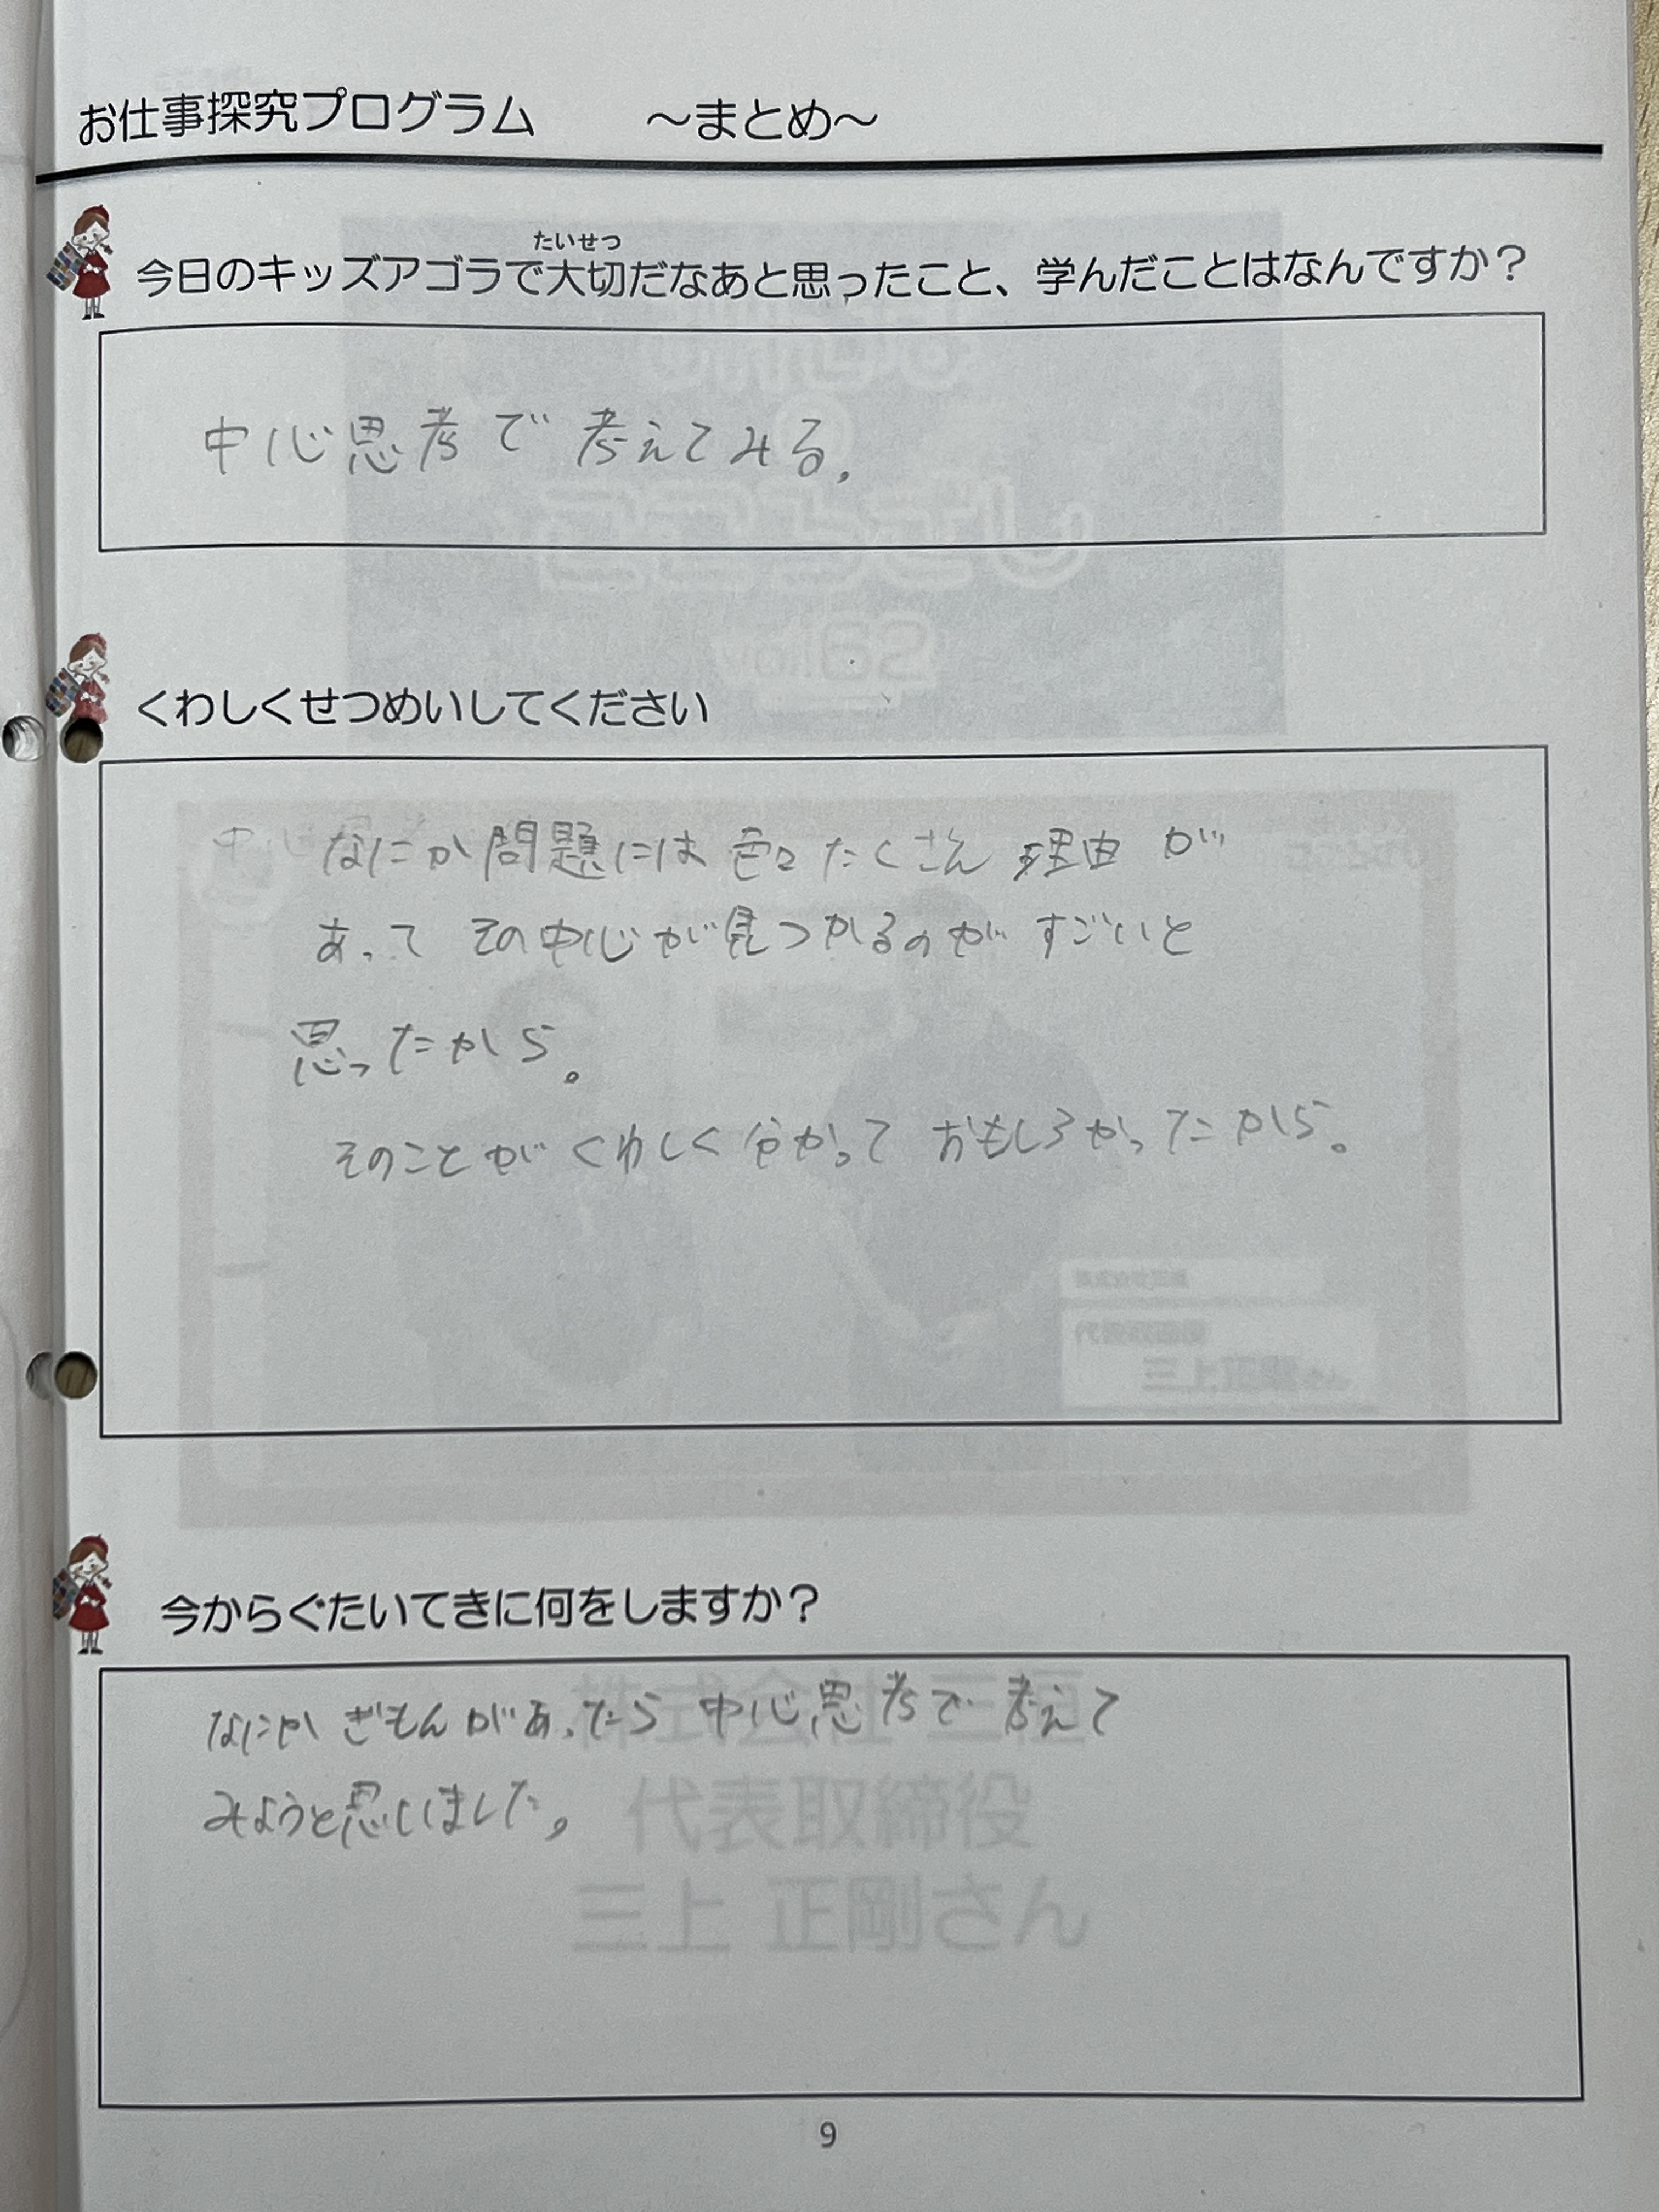 お仕事探究プログラム ～まとめ～
たいせつ
今日のキッズアゴラで大切だなあと思ったこと、学んだことはなんですか？
中心思考で考えてみる。
くわしくせつめいしてください
なにか問題には色々たくさん理由が
あって その中心が見つかるのがすごいと
思ったから。
そのことがくわしく分かっておもしろかったから。
今からぐたいてきに何をしますか？
なにか ぎもんがあったら 中心思考で考えて
みようと思いました。
株式会社 三垣
代表取締役
三上 正剛さん
9